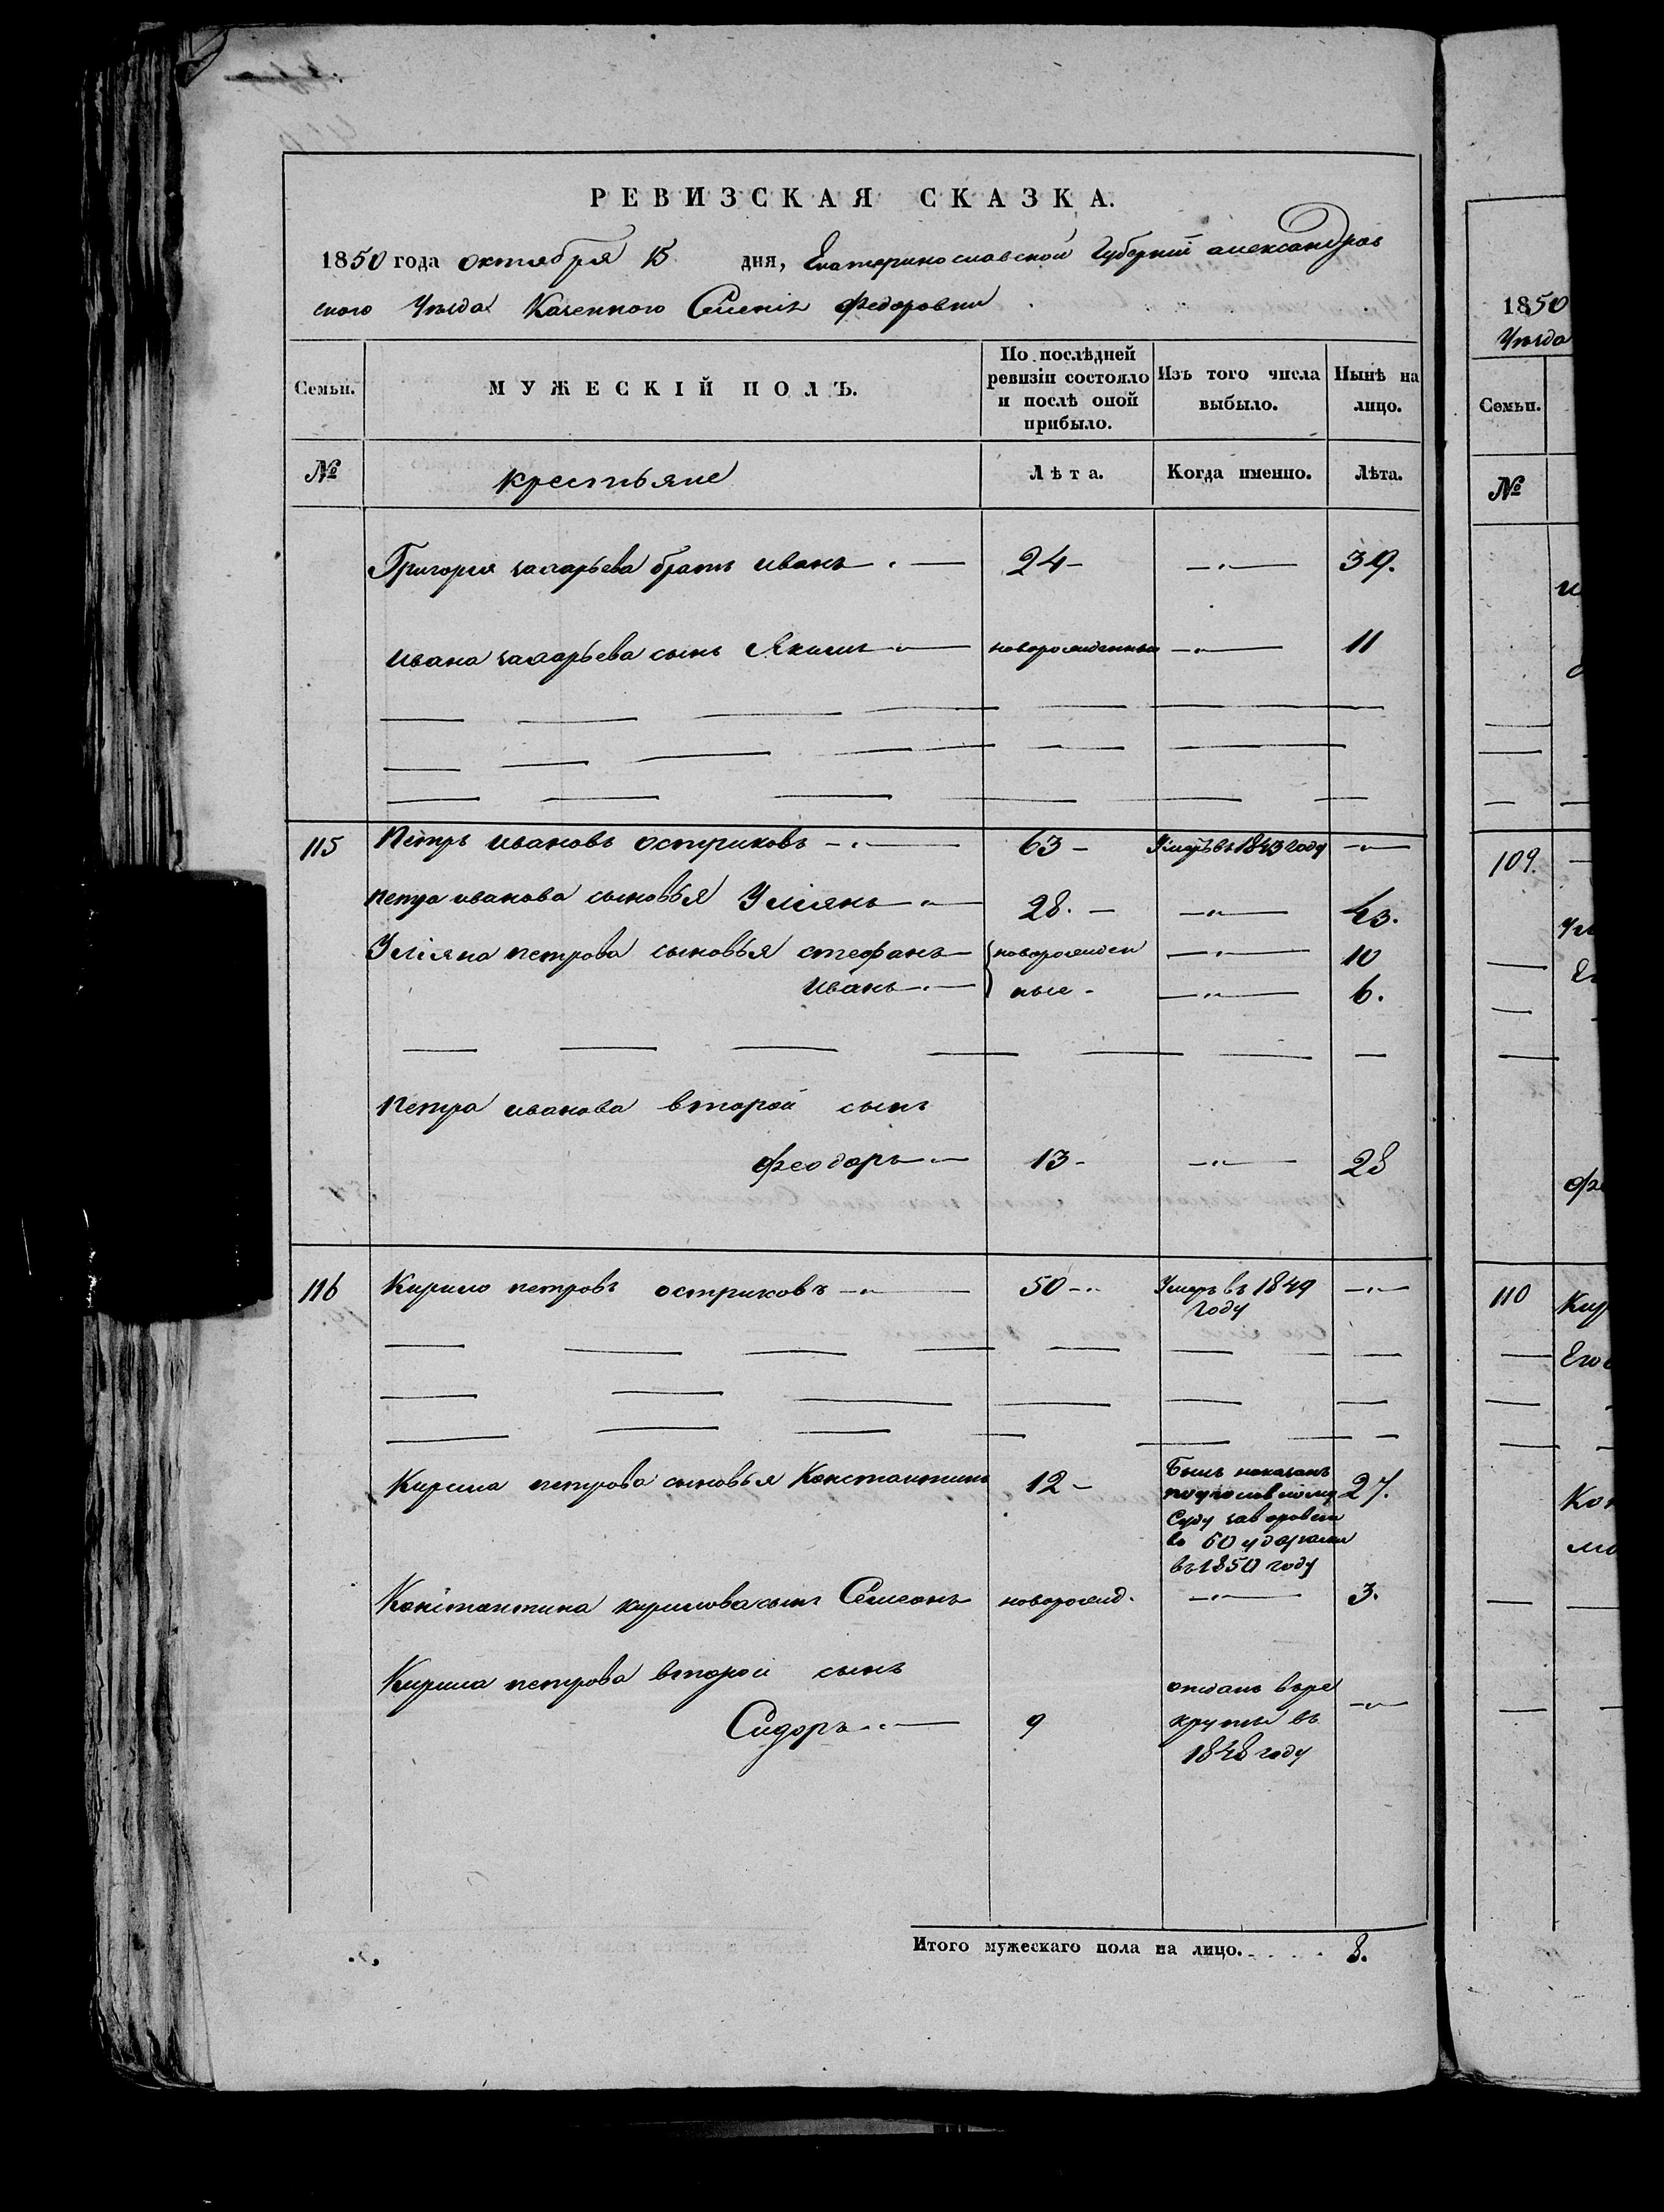 РЕВИЗСКАЯ СКАЗКА.
1850 года октября 15 дня, Екатеринославской Губернiи александров
ского Уѣзда Казенного Селенiя Федоровки
Семьи. МУЖЕСКІЙ ПОЛЪ. По послѣдней ревизіи состояло и послѣ оной прибыло. Изъ того числа выбыло. Нынѣ на лицо.
№ крестьяне Лѣта. Когда именно. Лѣта.
Григорiя захарьева братъ иванъ 24 — 39.
ивана захарьева сынъ Якимъ новорожденный — 11
115 Петръ ивановъ остриковъ 63 — Умеръ въ 1843 году —
петра иванова сыновья Улiянъ 28. — 43.
Улiяна петрова сыновья стефанъ новорожден — 10
иванъ ные — 6.
петра иванова второй сынъ
Феодоръ 13 — 28
116 Кирило петровъ остриковъ 50 — Умеръ въ 1849 —
году
Кирила петрова сыновья Константинъ 12 — Былъ наказанъ 27.
по
Суду
50 ударами
въ 1850 году
Константина кирилова сынъ Семеонъ новорожд. — 3.
Кирила петрова второй сынъ
Сидоръ 9 отданъ въ ре —
круты въ
1848 году
Итого мужескаго пола на лицо. 8.
1850
Уѣзда
Семьи.
№
109.
110